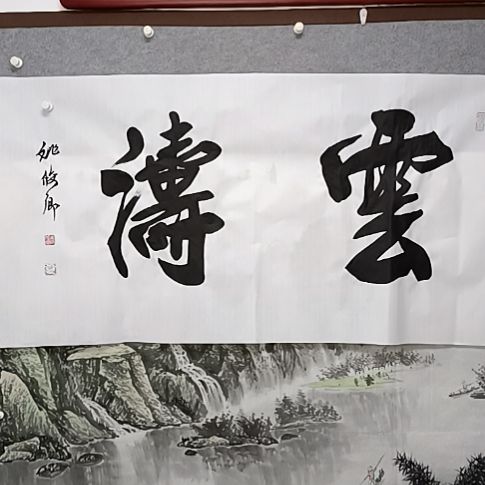 雲濤
姚俊卿